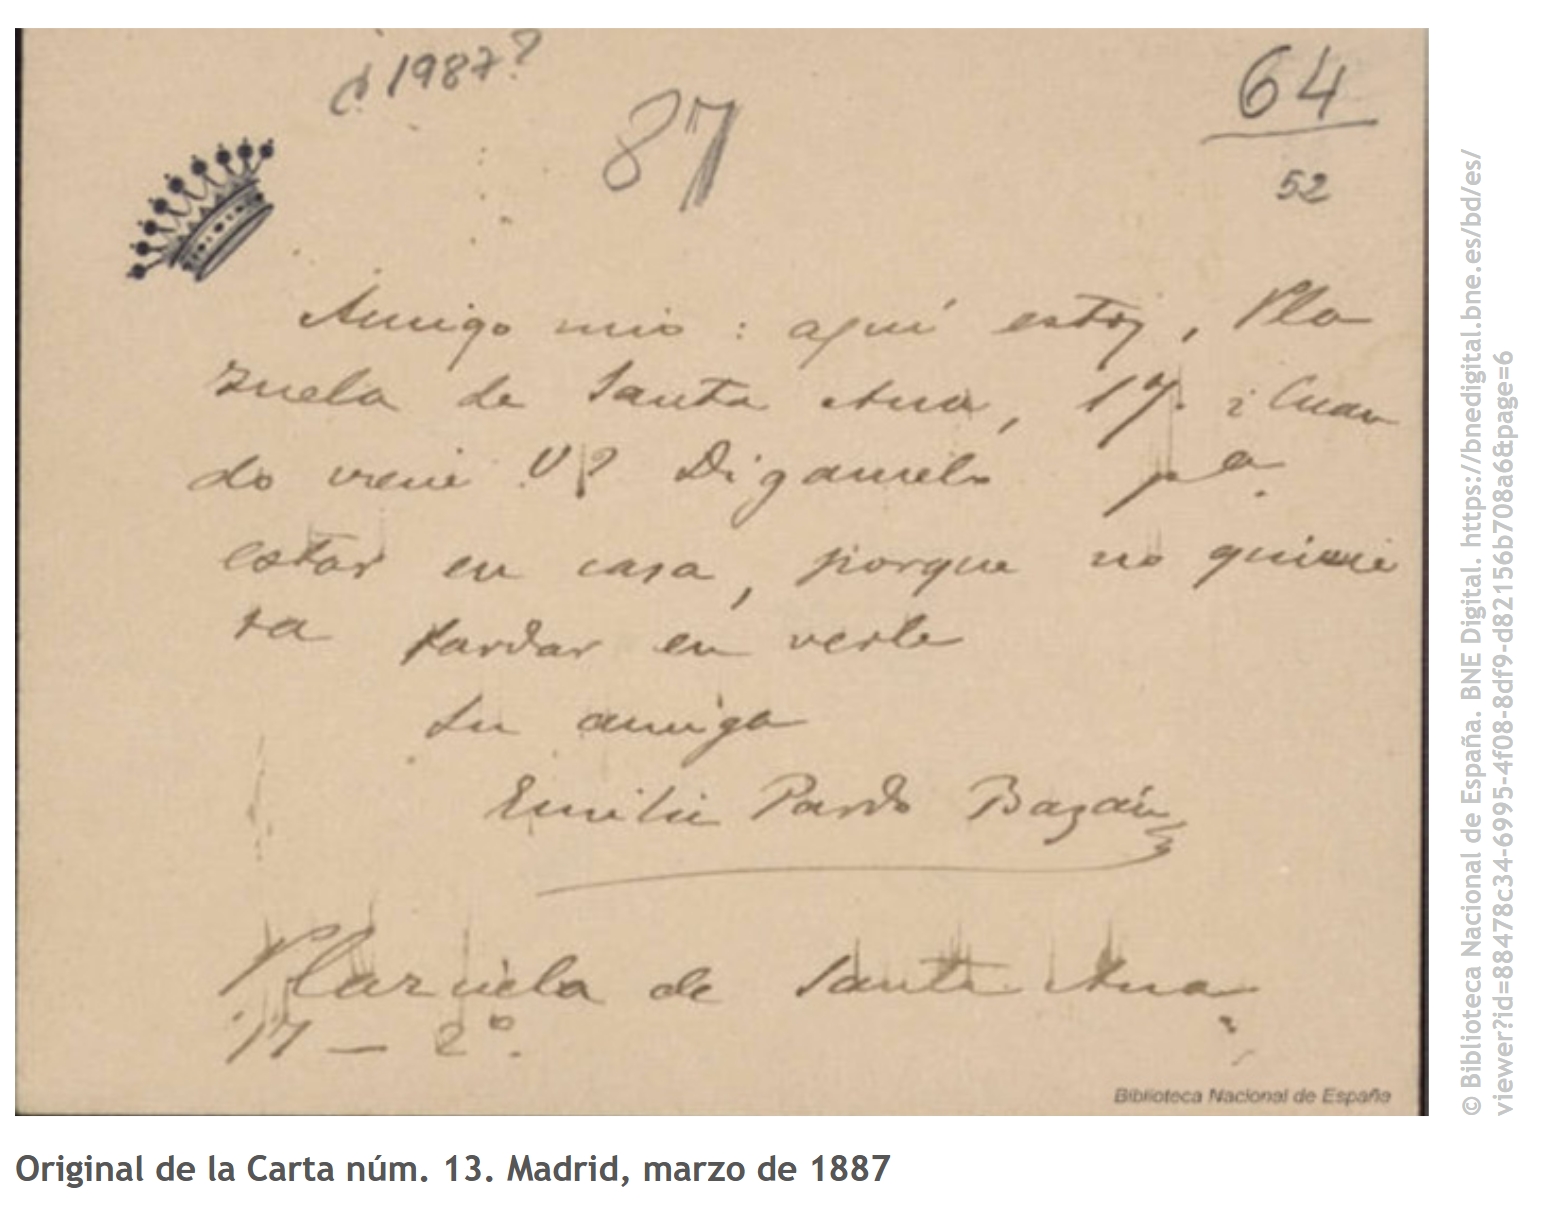 ¿1987?
87
64
52
Amigo mio: aquí estoy, Pla
zuela de Santa Ana, 17. ¿Cuan
do viene V? Digamelo pª.
estar en casa, porque no quisie
ra tardar en verle
Su amiga
Emilia Pardo Bazán
Plazuela de Santa Ana
17 — 2º.
Biblioteca Nacional de España
© Biblioteca Nacional de España. BNE Digital. https://bnedigital.bne.es/bd/es/
viewer?id=88478c34-6995-4f08-8df9-d82156b708a6&page=6
Original de la Carta núm. 13. Madrid, marzo de 1887